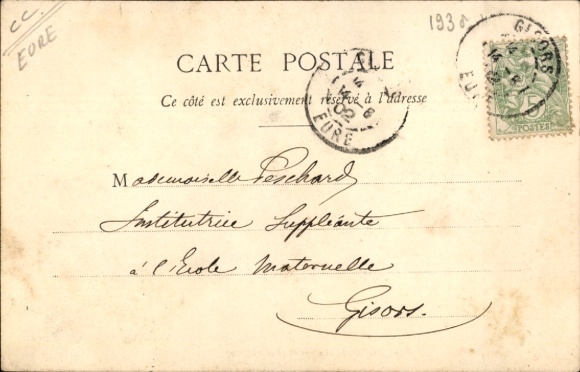 CC
EURE
1938
CARTE POSTALE
Ce côté est exclusivement réservé à l'adresse
GISORS
EURE
5
POSTES
EURE
Mademoiselle Peschard
Institutrice Suppléante
à l'Ecole Maternelle
Gisors.